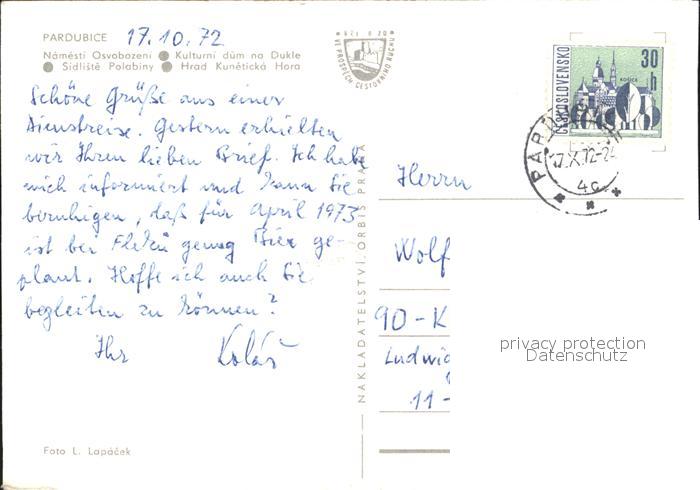 PARDUBICE 17.10.72
Náměstí Osvobození ● Kulturní dům na Dukle
● Sídliště Polabiny ● Hrad Kunětická Hora
Schöne Grüße aus einer
Dienstreise. Gestern erhielten
wir Ihren lieben Brief. Ich habe
mich informiert und kann Sie
beruhigen, daß für April 1973
ist bei Fleků genug Bier ge-
plant. Hoffe ich auch Sie
begleiten zu können?
Ihr Kolář
Foto L. Lapáček
NAKLADATELSTVÍ ORBIS PRAHA
VE PROSPĚCH CESTOVNÍHO RUCHU
ČESKOSLOVENSKO
30
h
KOŠICE
17.X.72-24
4c
Herrn
Wolf
90-K
Ludwig
11-
privacy protection
Datenschutz